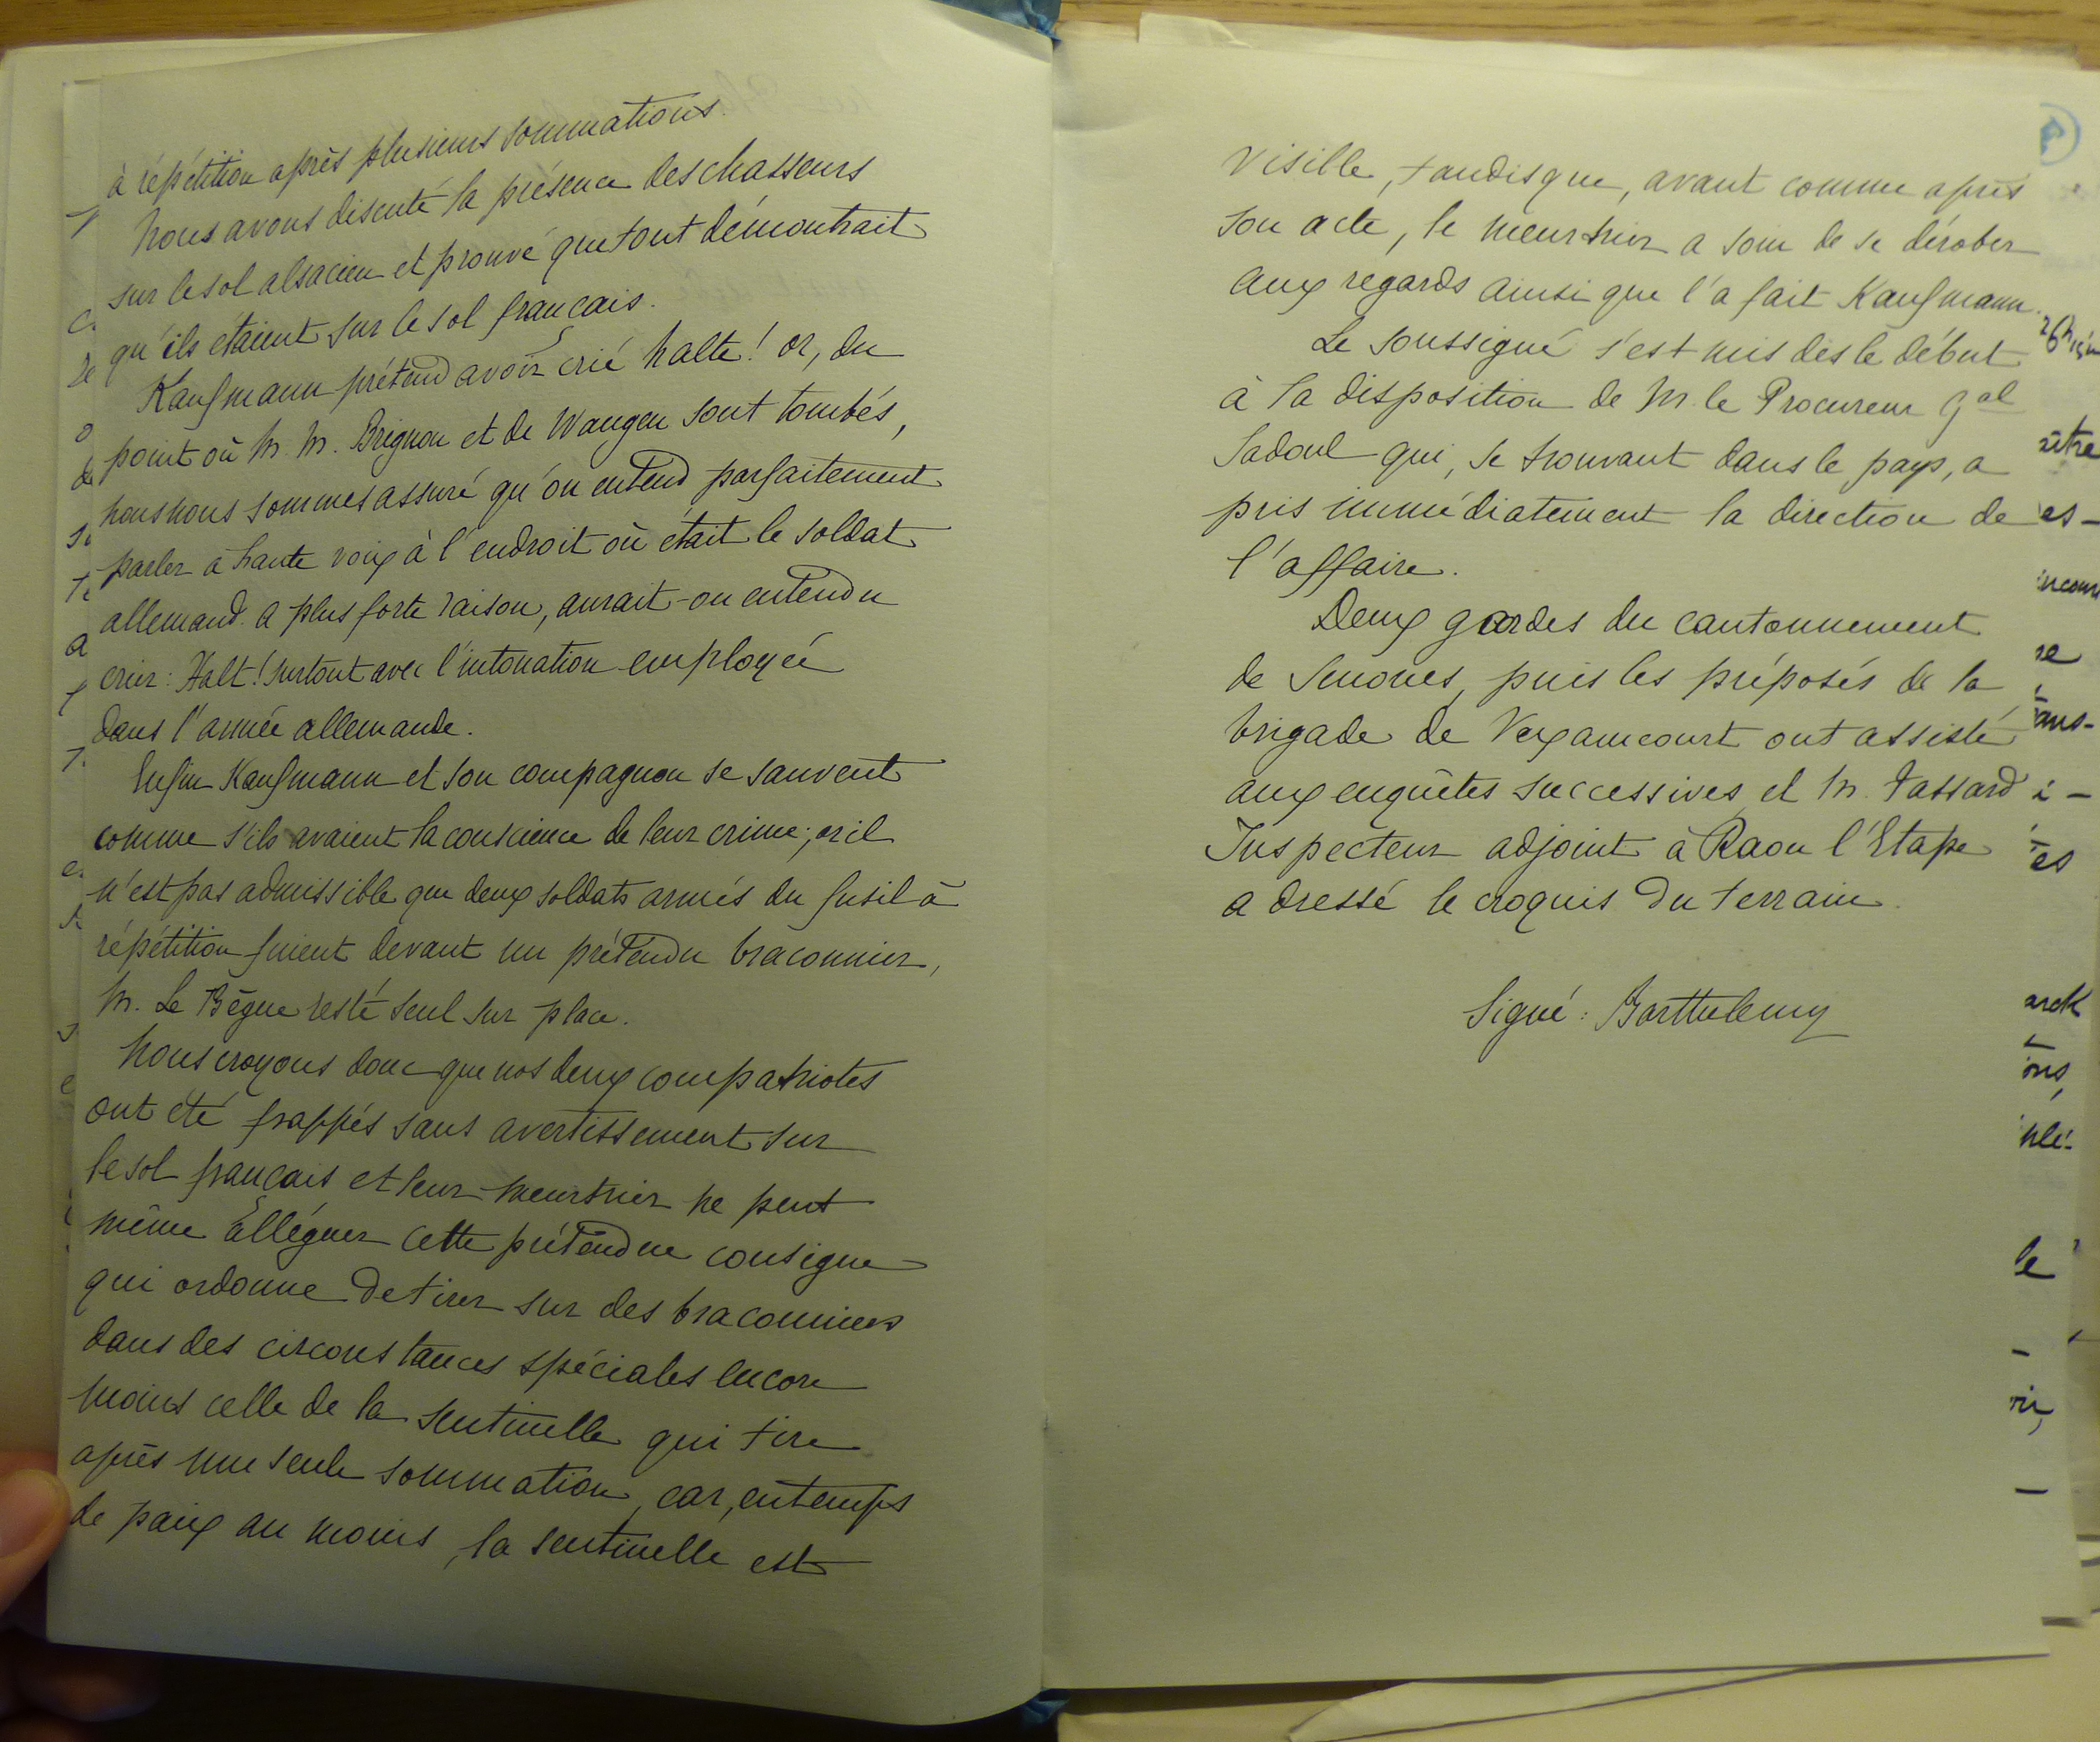 à répétition après plusieurs sommations.
Nous avons discuté la présence des chasseurs
sur le sol alsacien et prouvé que tout démontrait
qu'ils étaient sur le sol français.
Kaufmann prétend avoir crié halte! or, du
point où M. M. Brignon et de Wangen sont tombés,
nous nous sommes assuré qu'on entend parfaitement
parler à haute voix à l'endroit où était le soldat
allemand. a plus forte raison, aurait-on entendu
crier: Halt! surtout avec l'intonation employée
dans l'armée allemande.
Enfin Kaufmann et son compagnon se sauvent
comme s'ils avaient la conscience de leur crime; or il
n'est pas admissible que deux soldats armés du fusil à
répétition fuient devant un prétendu braconnier,
M. Le Bègue resté seul sur place.
Nous croyons donc que nos deux compatriotes
ont été frappés sans avertissement sur
le sol français et leur meurtrier ne peut
même alléguer cette prétendue consigne
qui ordonne de tirer sur des braconniers
dans des circonstances spéciales encore
moins celle de la sentinelle qui tire
après une seule sommation, car, en temps
de paix au moins, la sentinelle est
visible, tandis que, avant comme après
son acte, le meurtrier a soin de se dérober
aux regards ainsi que l'a fait Kaufmann.
Le soussigné s'est mis dès le début
à la disposition de M. le Procureur Gal
Sadoul qui, se trouvant dans le pays, a
pris immédiatement la direction de
l'affaire.
Deux gardes du cantonnement
de Senones, puis les préposés de la
brigade de Vexaincourt ont assisté
aux enquêtes successives et M. Tassard
Inspecteur adjoint à Raon l'Etape
a dressé le croquis du terrain.
Signé: Barthélemy